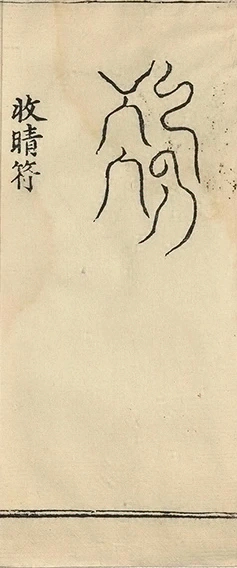 收晴符